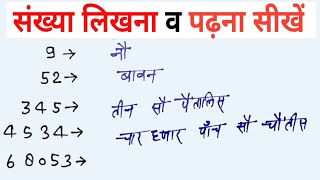 संख्या लिखना व पढ़ना सीखें
9 → नौ
52 → बावन
345 → तीन सौ पैंतालिस
4534 → चार हजार पाँच सौ चौंतीस
68053 →